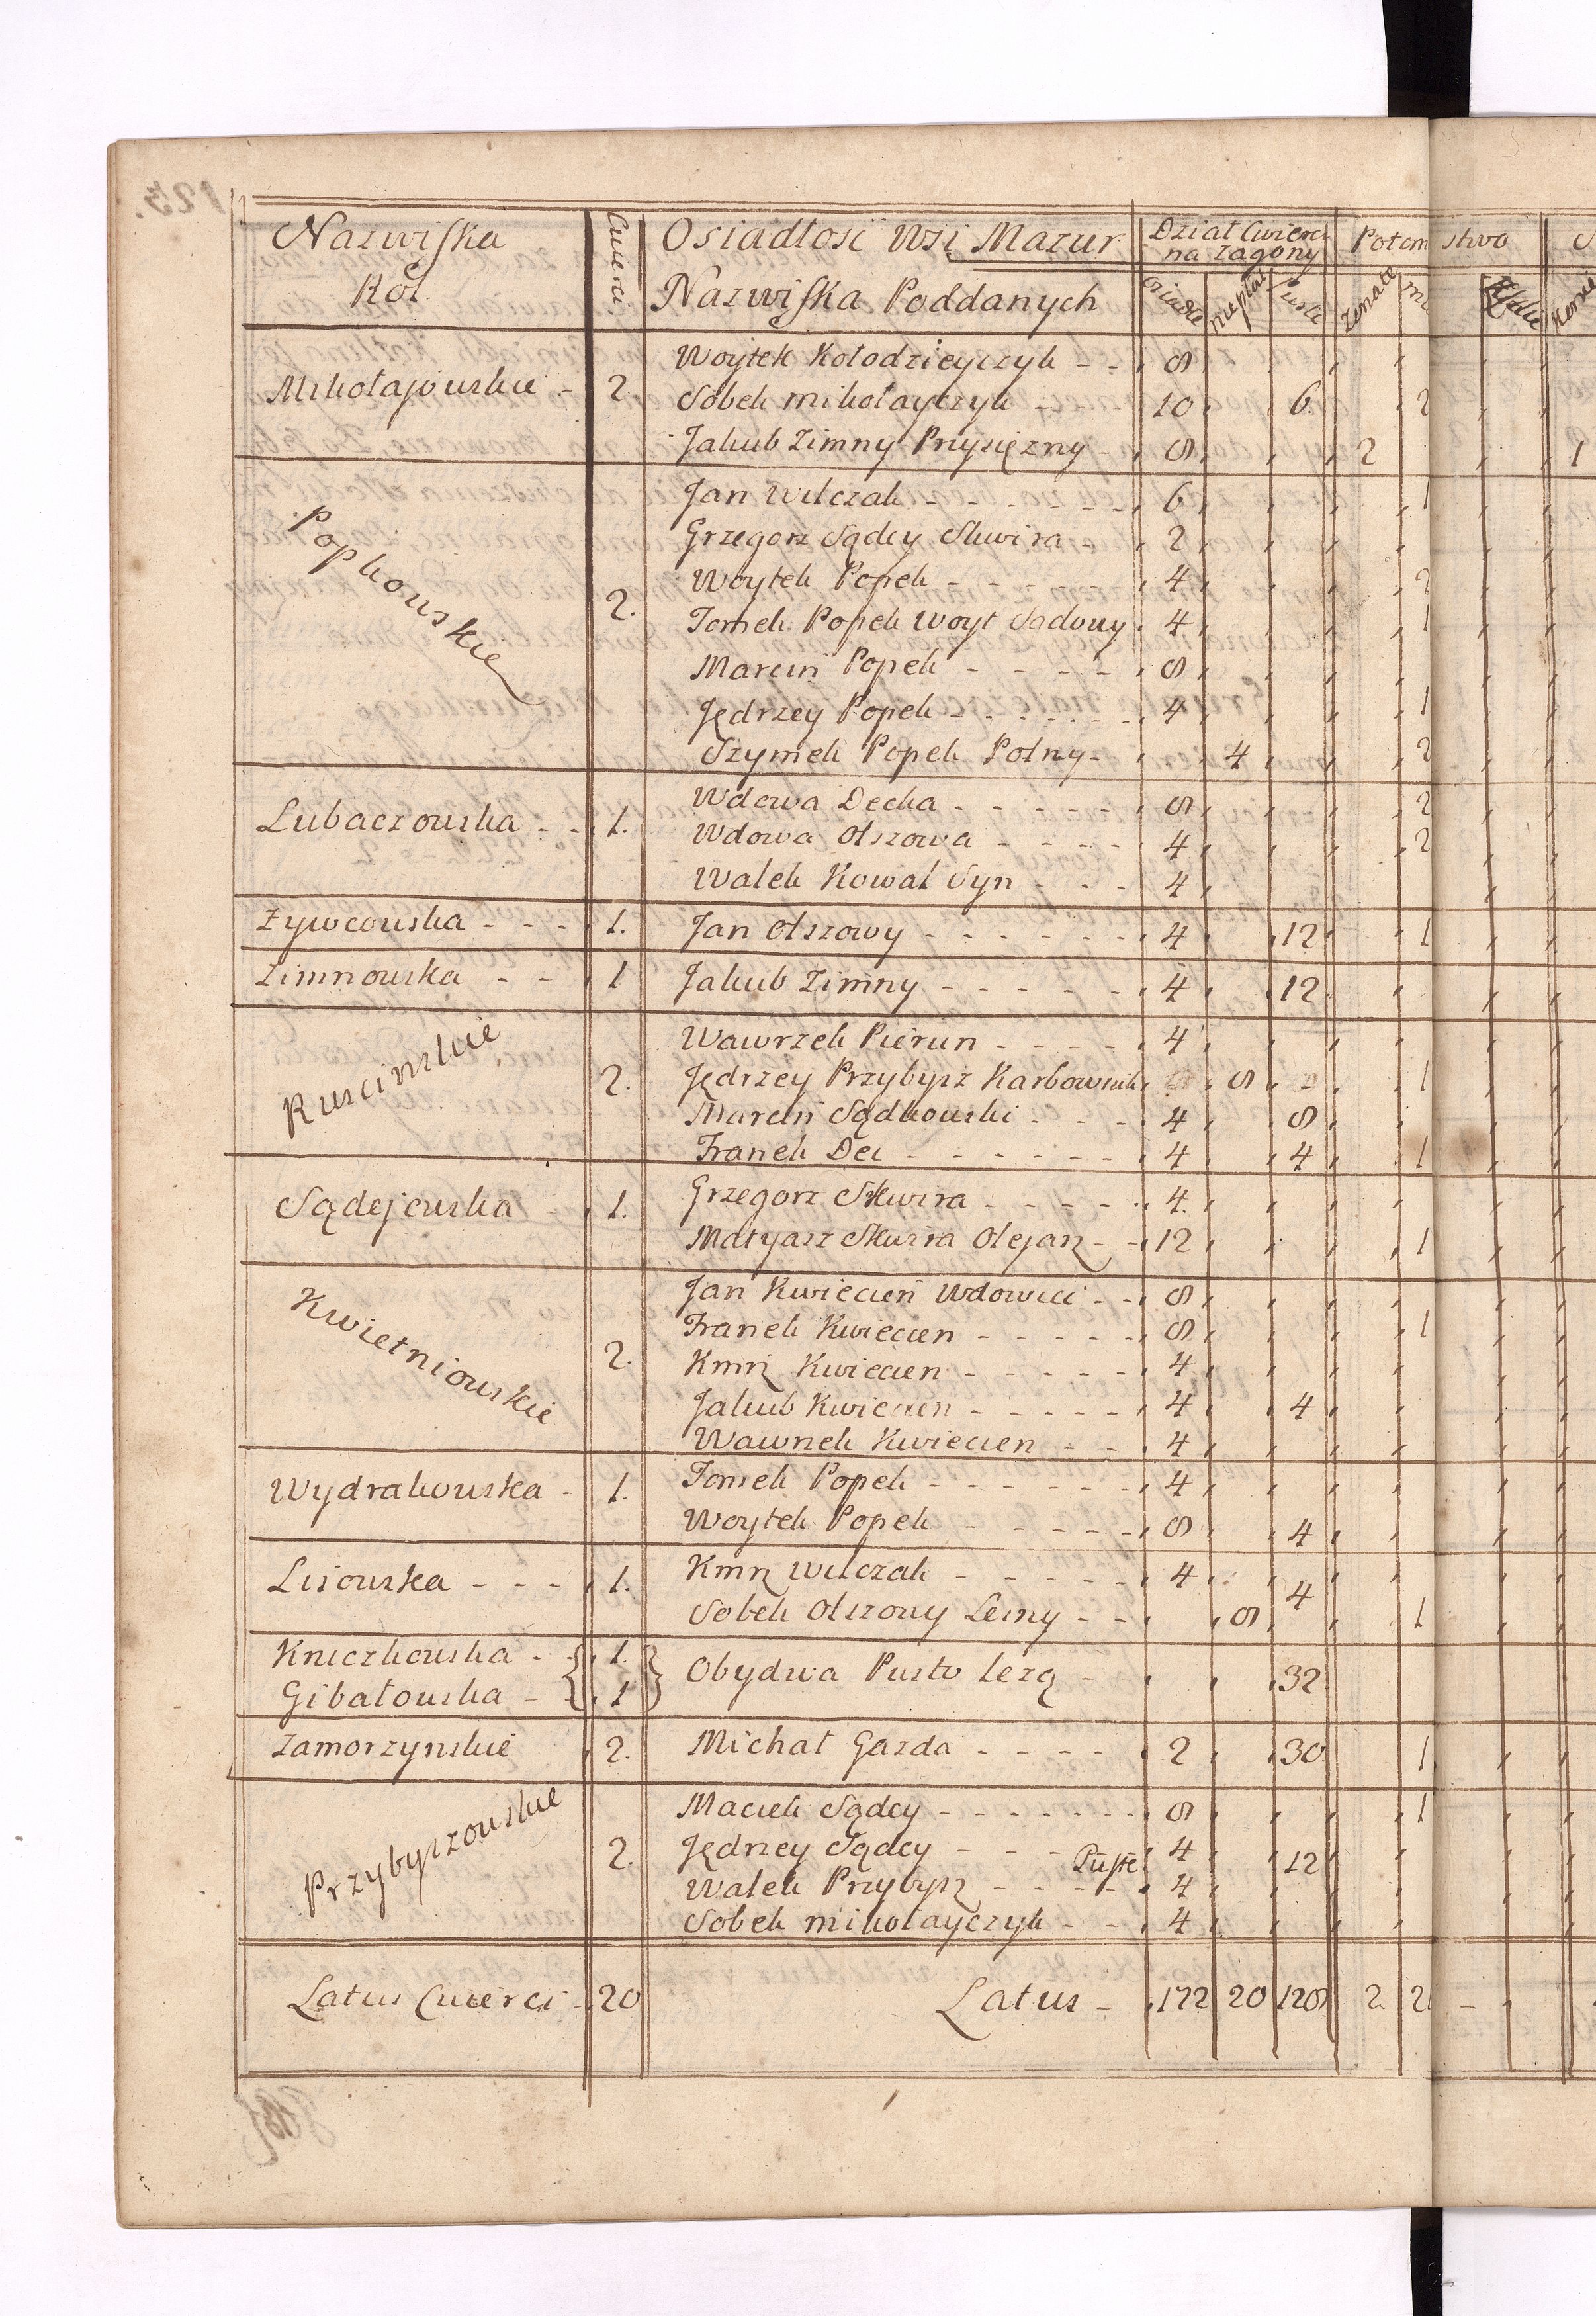 Nazwiska Ról. Cwierci Osiadłosć Wsi Mazur Dział Cwierci na zagony Potomstwo
Nazwiska Poddanych osiadłe niepłat puste żonate
Woytek Kołodzieyczyk - - 8
Mikołajowskie - 2 Sobek mikołayczyk - 10 6. 2
Jakub Zimny Przysięzny - 8 2 1
Jan Wilczak - - - - - - 6 1
Grzegorz Sądey Skwira - 2
Woytek Popek - - - - - 4 2
Popkowskie 2. Tomek Popek Woyt Sadowy 4 1
Marcin Popek - - - - 8
Jędrzey Popek - - - - - 4 1
Szymek Popek Polny - 4 2
Wdowa Decka - - - - - 8 2
Lubaczowska - - 1. Wdowa Olszowa - - - - 4 2
Walek Kowal Syn - - - 4
Zywcowska - - - 1. Jan Olszowy - - - - - - 4 12 1
Zimnowska - - 1 Jakub Zimny - - - - - 4 12
Wawrzek Pierun - - - - 4
Ruscinskie 2. Jędrzey Przybysz Karbownik 8 1
Marcin Sądkowski - - - 4 8
Franek Dec - - - - - - 4 4 1
Sądejowska - 1. Grzegorz Skwira - - - - - 4.
Matyasz Skwira Olejarz - - 12 1
Jan Kwiecien Wdowiec - - 8
Franek Kwiecien - - - - - 8 1
Kwietniowskie 2. Kmrz Kwiecien - - - - - 4
Jakub Kwiecien - - - - - 4 4
Wawrzek Kwiecien - - 4
Wydrakowska - 1. Tomek Popek - - - - - - 4
Woytek Popek - - - - - 8 4
Lisowska - - - 1. Kmrz Wilczak - - - - - 4
4
Sobek Olszowy Lesny - - 8 1
Kniczkowska - - 1.
Obydwa Pusto lezą - 32
Gibałowska - 1
Zamorzynskie 2. Michał Gazda - - - - 2 30. 1
Maciek Sądey - - - - - - 8 1
Przybyszowskie 2. Jędrzey Sądey - - - 4
Puste 12
Walek Przybysz - - - - 4
Sobek mikołayczyk - - 4
Latus Cwierci - 20 Latus - 172 20 128 2.